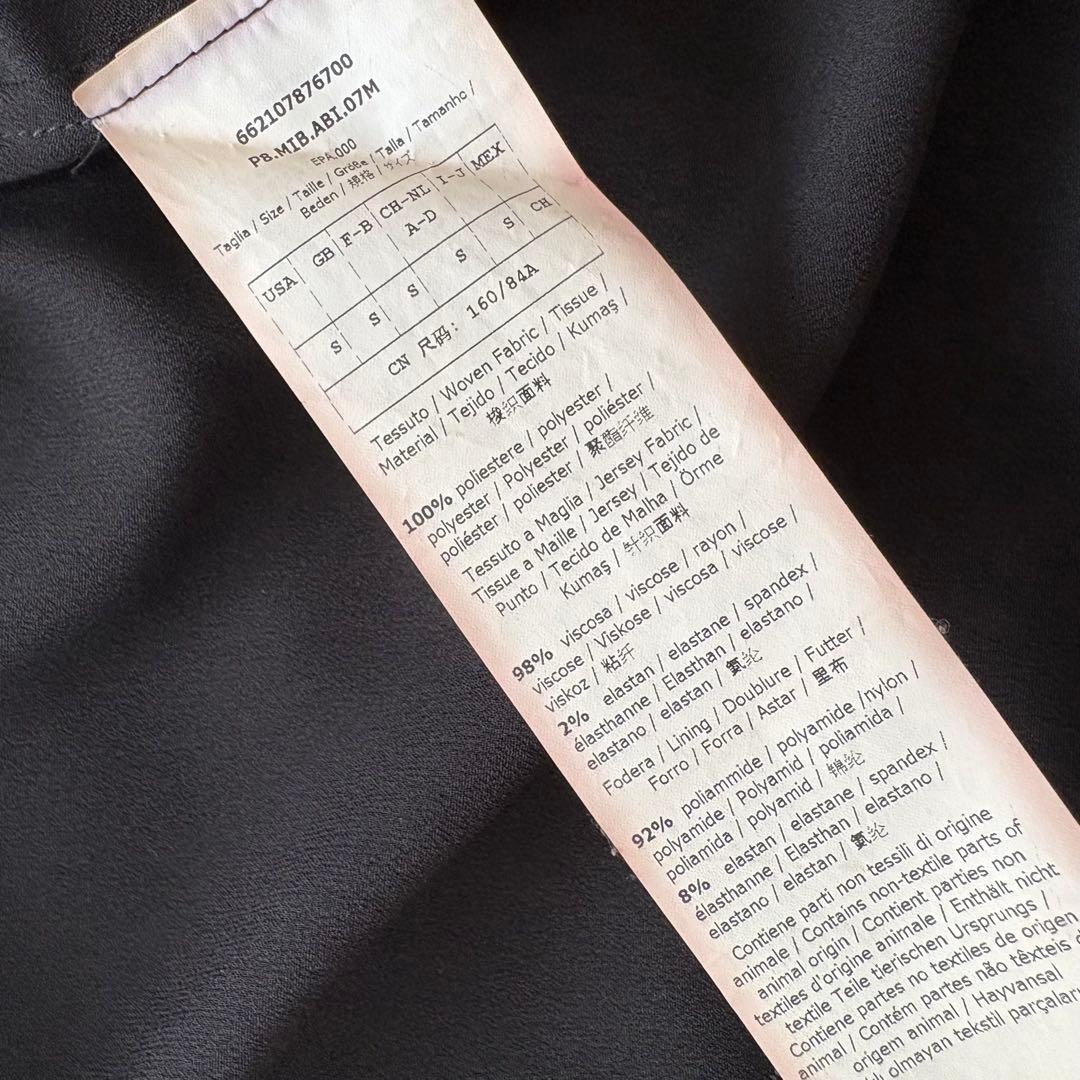 662107876700
PB.MIB.ABI.07M
EPA000
Taglia / Size / Taille / Größe / Talla / Tamanho /
Beden / 规格 / サイズ
USA GB F-B CH-NL I-J MEX
A-D
S S S S S CH
CN 尺码: 160/84A
Tessuto / Woven Fabric / Tissue /
Material / Tejido / Tecido / Kumaş /
梭织面料
100% poliestere / polyester /
polyester / Polyester / poliéster /
poliéster / poliester / 聚酯纤维
Tessuto a Maglia / Jersey Fabric /
Tissue a Maille / Jersey / Tejido de
Punto / Tecido de Malha / Örme
Kumaş / 针织面料
98% viscosa / viscose / rayon /
viscose / Viskose / viscosa / viscose /
viskoz / 粘纤
2% elastan / elastane / spandex /
élasthanne / Elasthan / elastano /
elastano / elastan / 氨纶
Fodera / Lining / Doublure / Futter /
Forro / Forra / Astar / 里布
92% poliammide / polyamide /nylon /
polyamide / Polyamid / poliamida /
poliamida / polyamid / 锦纶
8% elastan / elastane / spandex /
élasthanne / Elasthan / elastano /
elastano / elastan / 氨纶
Contiene parti non tessili di origine
animale / Contains non-textile parts of
animal origin / Contient parties non
textiles d'origine animale / Enthält nicht
textile Teile tierischen Ursprungs /
Contiene partes no textiles de origen
animal / Contém partes não têxteis
origem animal / Hayvansal
olmayan tekstil